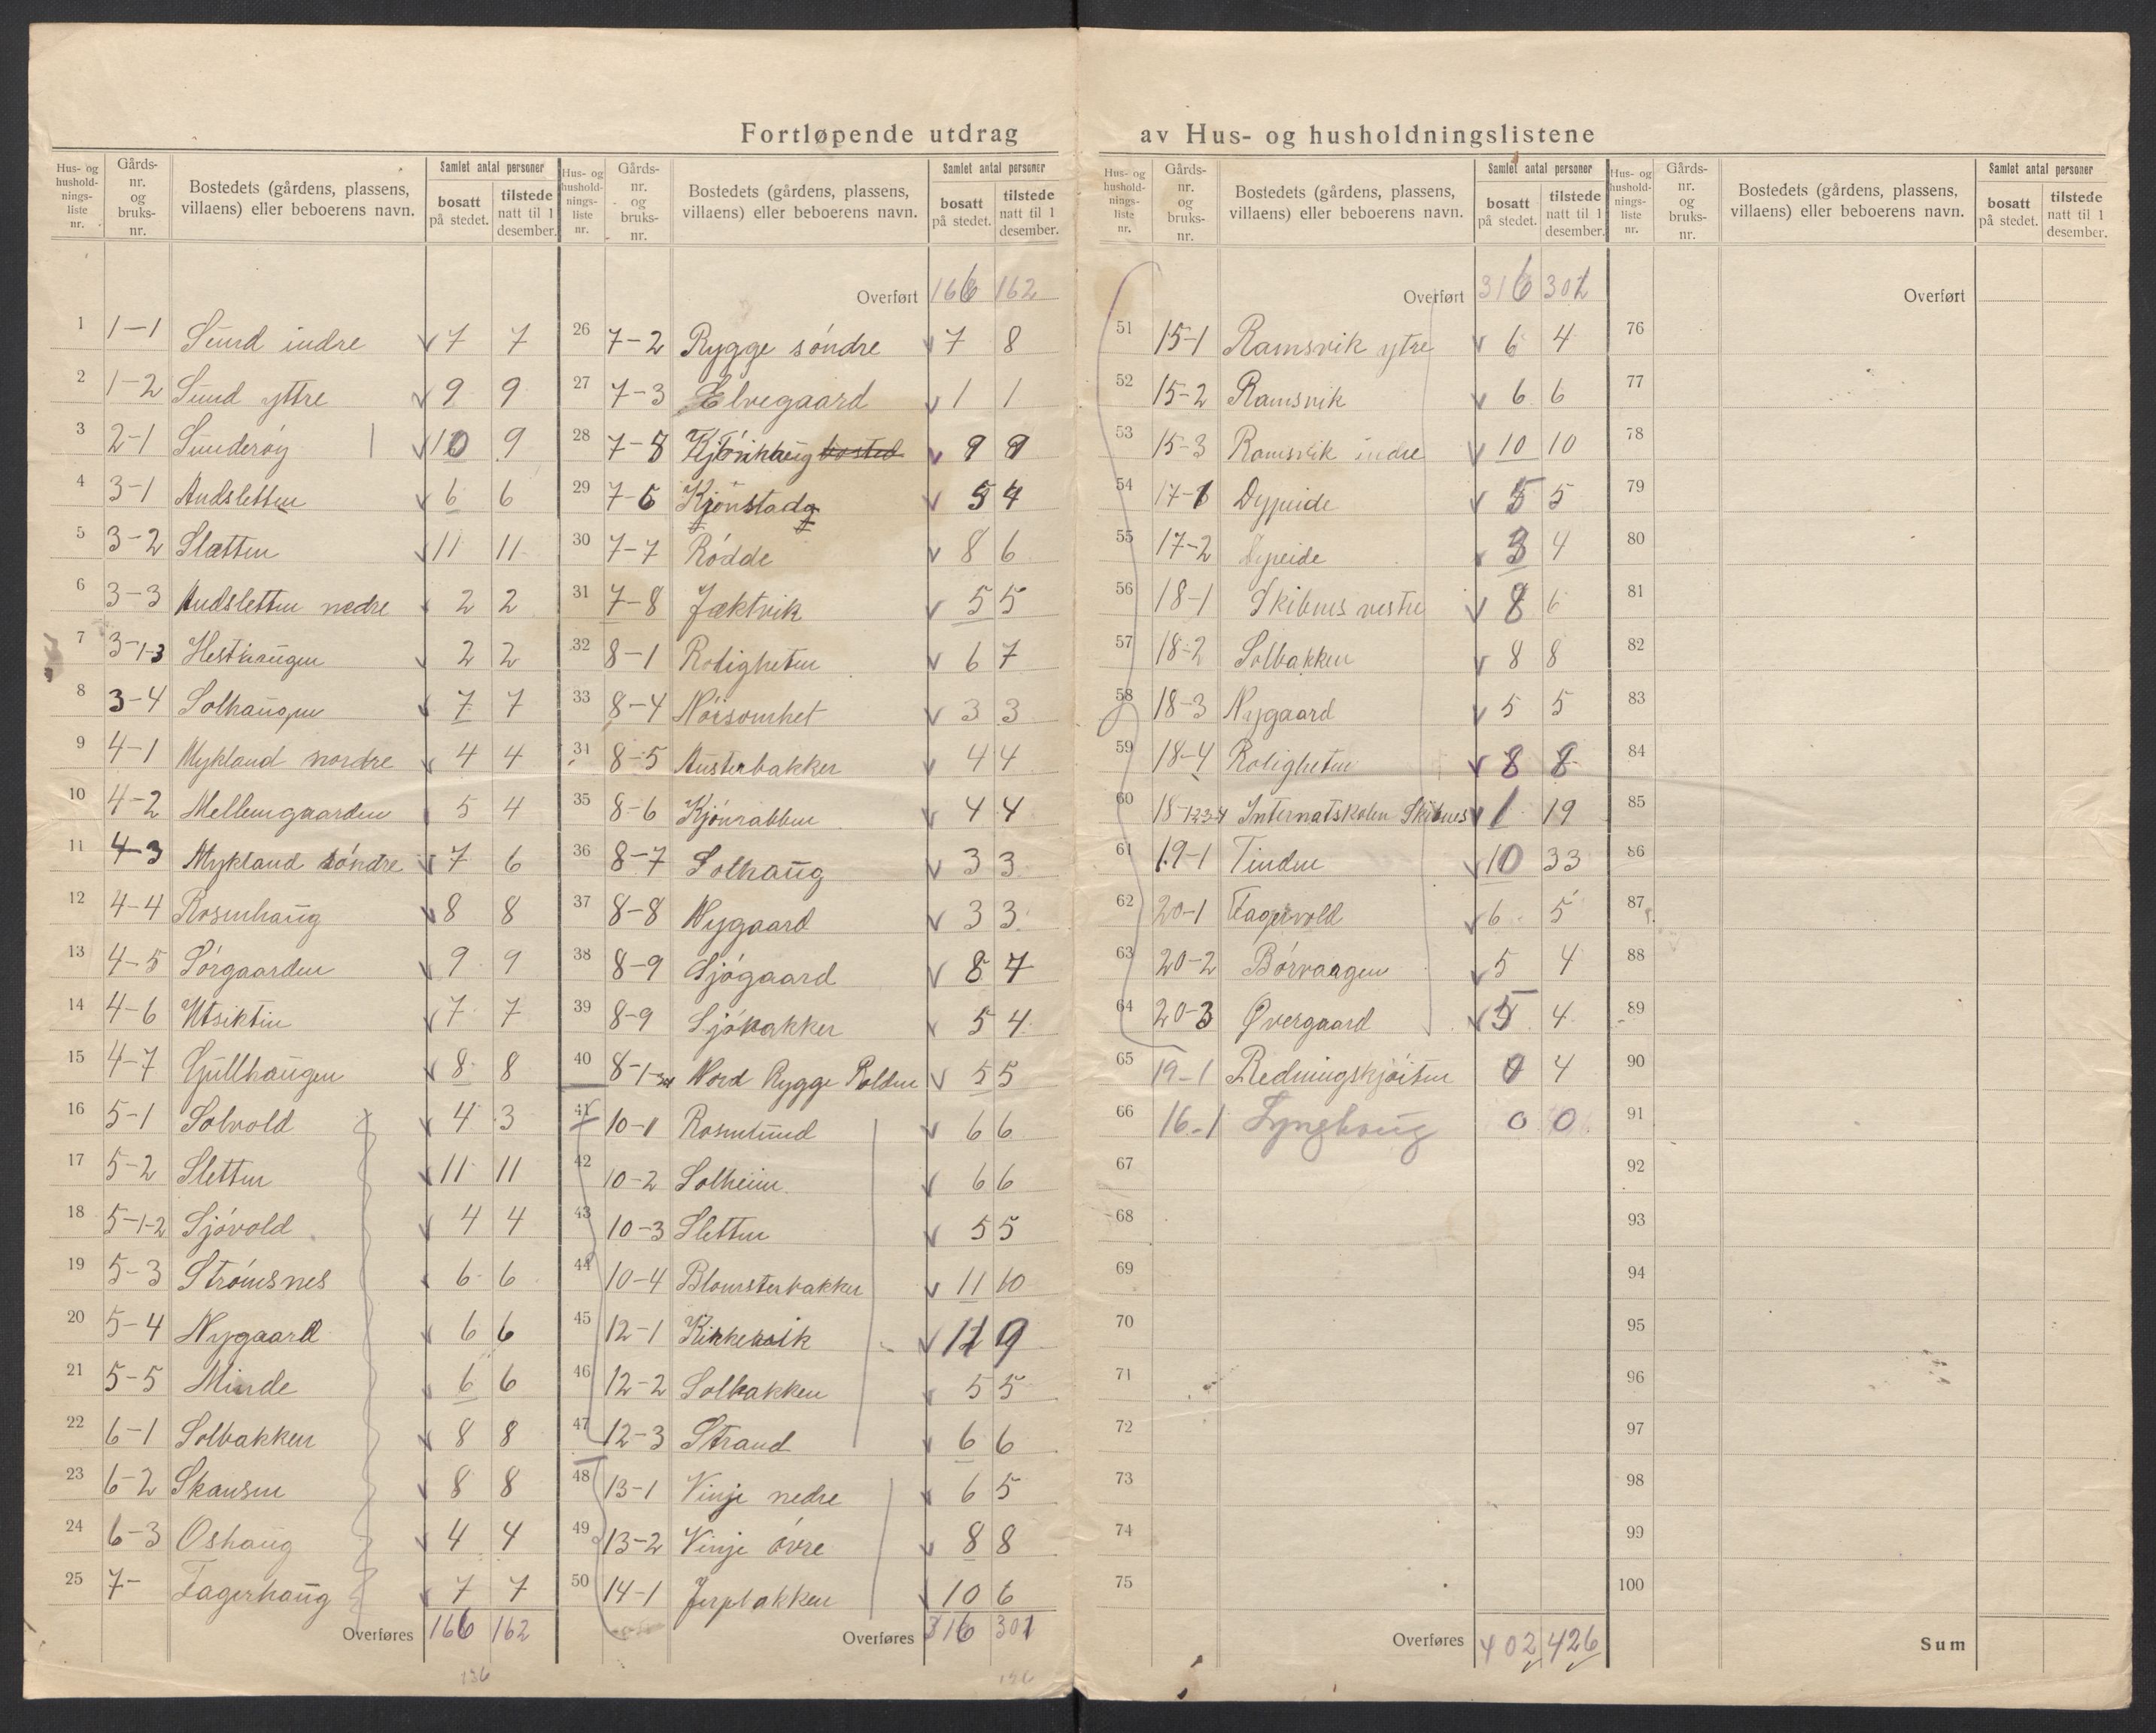 Fortløpende utdrag av Hus- og husholdningslistene
Hus- og hushold-nings-liste nr. Gårds-nr. og bruks-nr. Bostedets (gårdens, plassens, villaens) eller beboerens navn. Samlet antal personer bosatt på stedet. tilstede natt til 1 desember.
1 1-1 Sund indre 7 7
2 1-2 Sund yttre 9 9
3 2-1 Sunderøy 10 9
4 3-1 Andsletten 6 6
5 3-2 Slætten 11 11
6 3-3 Andsletten nedre 2 2
7 3-1-3 Hesthaugen 2 2
8 3-4 Solhaugen 7 7
9 4-1 Mykland nordre 4 4
10 4-2 Mellemgaarden 5 4
11 4-3 Mykland söndre 7 6
12 4-4 Rosenhaug 8 8
13 4-5 Sörgaarden 9 9
14 4-6 Utsikten 7 7
15 4-7 Gullhaugen 8 8
16 5-1 Solvold 4 3
17 5-2 Sletten 11 11
18 5-1-2 Sjövold 4 4
19 5-3 Strömsnes 6 6
20 5-4 Nygaard 6 6
21 5-5 Minde 6 6
22 6-1 Solbakken 8 8
23 6-2 Skansen 8 8
24 6-3 Oshaug 4 4
25 7- Fagerhaug 7 7
Overføres 166 162
136
Hus- og hushold-nings-liste nr. Gårds-nr. og bruks-nr. Bostedets (gårdens, plassens, villaens) eller beboerens navn. Samlet antal personer bosatt på stedet. tilstede natt til 1 desember.
Overført 166 162
26 7-2 Rygge söndre 7 8
27 7-3 Elvegaard 1 1
28 7- bosted 9 9
29 7-5 Kjönstad 5 4
30 7-7 Rödde 8 6
31 7-8 Jæktvik 5 5
32 8-1 Roligheten 6 7
33 8-4 Nöisomhet 3 3
34 8-5 Austerbakken 4 4
35 8-6 Kjönrabben 4 4
36 8-7 Solhaug 3 3
37 8-8 Nygaard 3 3
38 8-9 Sjögaard 8 7
39 8-9 Sjöbakken 5 4
40 8-1- Nord Rygge Polden 5 5
41 10-1 Rosenlund 6 6
42 10-2 Solheim 6 6
43 10-3 Sletten 5 5
44 10-4 Blomsterbakken 11 10
45 12-1 Kirkevik 11 9
46 12-2 Solbakken 5 5
47 12-3 Strand 6 6
48 13-1 Vinje nedre 6 5
49 13-2 Vinje övre 8 8
50 14-1 Jerpbakken 10 6
Overføres 316 301
Hus- og hushold-nings-liste nr. Gårds-nr. og bruks-nr. Bostedets (gårdens, plassens, villaens) eller beboerens navn. Samlet antal personer bosatt på stedet. tilstede natt til 1 desember.
Overført 316 301
51 15-1 Ramsvik ytre 6 4
52 15-2 Ramsvik 6 6
53 15-3 Ramsvik indre 10 10
54 17-1 Dypeide 5 5
55 17-2 Dypeide 3 4
56 18-1 Skibnes vestre 8 6
57 18-2 Solbakken 8 8
58 18-3 Nygaard 5 5
59 18-4 Roligheten 8 8
60 18-1234 Internatskolen Skibnes 1 19
61 19-1 Tinden 10 33
62 20-1 Fagervold 6 5
63 20-2 Börvaagen 5 4
64 20-3 Øvergaard 5 4
65 19-1 Redningskjöiten 0 4
66 16-1 Lynghaug 0 0
67
68
69
70
71
72
73
74
75
Overføres 402 426
Hus- og hushold-nings-liste nr. Gårds-nr. og bruks-nr. Bostedets (gårdens, plassens, villaens) eller beboerens navn. Samlet antal personer bosatt på stedet. tilstede natt til 1 desember.
Overført
76
77
78
79
80
81
82
83
84
85
86
87
88
89
90
91
92
93
94
95
96
97
98
99
100
Sum